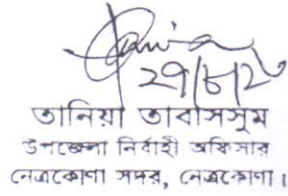 তানিয়া তাবাসসুম
উপজেলা নির্বাহী অফিসার
নেত্রকোণা সদর, নেত্রকোণা।